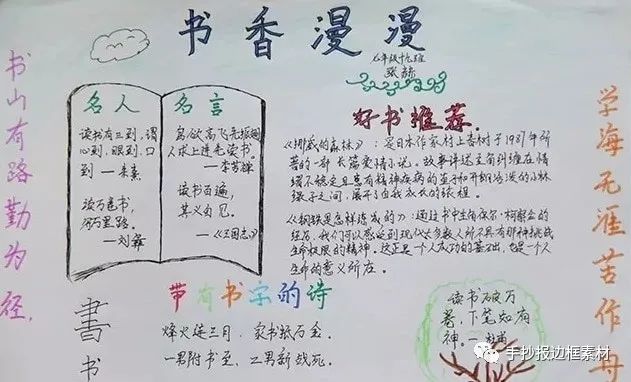 书香漫漫
七年级十九班
书山有路勤为径,
名人
读书有三到,谓
心到,眼到,口
到 — 朱熹
读万卷书,
行万里路.
— 刘彝
名言
鸟欲高飞先振翅
人求上进先读书.
— 李苦禅
读书百遍,
其义自见.
—《三国志》
好书推荐.
《挪威的森林》:是日本作家村上春树于1987年所
著的一部长篇爱情小说。故事讲述主角纠缠在情
绪不稳定且患有精神疾病的直子和开朗活泼的小林
绿子之间,展开了自我成长的旅程。
《钢铁是怎样炼成的》:通过书中主角保尔·柯察金的
经历,我们可以感受到现代大多数人所不具有那种挑战
生命极限的精神。这正是一个人成功的基石,也是一个人
生命的意义所在。
学海无涯苦作舟
書
书
带有书字的诗
烽火连三月,家书抵万金。
一男附书至,二男新战死。
读书破万
卷,下笔如有
神。—杜甫
手抄报边框素材